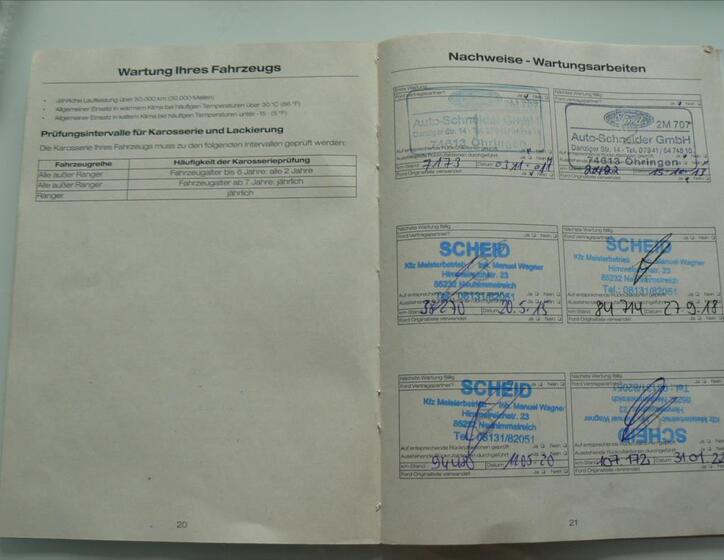 Wartung Ihres Fahrzeugs
• Jährliche Laufleistung über 50.000 km (30.000 Meilen)
• Allgemeiner Einsatz in warmem Klima bei häufigen Temperaturen über 30 °C (86 °F)
• Allgemeiner Einsatz in kaltem Klima bei häufigen Temperaturen unter -15 (5 °F)
Prüfungsintervalle für Karosserie und Lackierung
Die Karosserie Ihres Fahrzeugs muss zu den folgenden Intervallen geprüft werden:
Fahrzeugreihe Häufigkeit der Karosserieprüfung
Alle außer Ranger Fahrzeugalter bis 6 Jahre: alle 2 Jahre
Alle außer Ranger Fahrzeugalter ab 7 Jahre: jährlich
Ranger jährlich
20
Nachweise - Wartungsarbeiten
Erste Wartung
Ford Vertragspartner? Ja Nein
2M 707
Auto-Schneider GmbH
Danziger Str. 14
74613 Öhringen
7173 Datum
Ford Originalteile verwendet Ja Nein
Nächste Wartung fällig
Ford Vertragspartner? Ja Nein
Ford
2M 707
Auto-Schneider GmbH
Danziger Str. 14 - Tel. 07941/64 748 10
74613 Öhringen
km-Stand Datum 15-10-13
Ford Originalteile verwendet Ja Nein
Nächste Wartung fällig
Ford Vertragspartner? Ja Nein
SCHEID
Kfz Meisterbetrieb Inh. Manuel Wagner
Himmelreichstr. 23
85232 Neuhimmelreich
Tel.: 08131/82051
km-Stand 38270 Datum 20.5.15
Ford Originalteile verwendet Ja Nein
Nächste Wartung fällig
Ford Vertragspartner? Ja Nein
SCHEID
Kfz Meisterbetrieb Inh. Manuel Wagner
23
85232 Neuhimmelreich
Tel.: 08131/82051
km-Stand 84714 Datum 27.9.18
Ford Originalteile verwendet Ja Nein
Nächste Wartung fällig
Ford Vertragspartner? Ja Nein
SCHEID
Kfz Meisterbetrieb Inh. Manuel Wagner
23
85232 Neuhimmelreich
Tel.: 08131/82051
Auf entsprechende Rückrufaktionen geprüft Ja Nein
Ausstehende Rückrufaktionen durchgeführt Ja Nein
km-Stand Datum
Ford Originalteile verwendet Ja Nein
Nächste Wartung fällig
Ford Vertragspartner?
Tel.: 08131/82051
85232 Neuhimmelreich
Manuel Wagner
SCHEID
Auf entsprechende Rückrufaktionen geprüft Ja Nein
Ausstehende Rückrufaktionen durchgeführt Ja Nein
km-Stand 107.172 Datum 31.01.22
Ford Originalteile verwendet Ja Nein
21